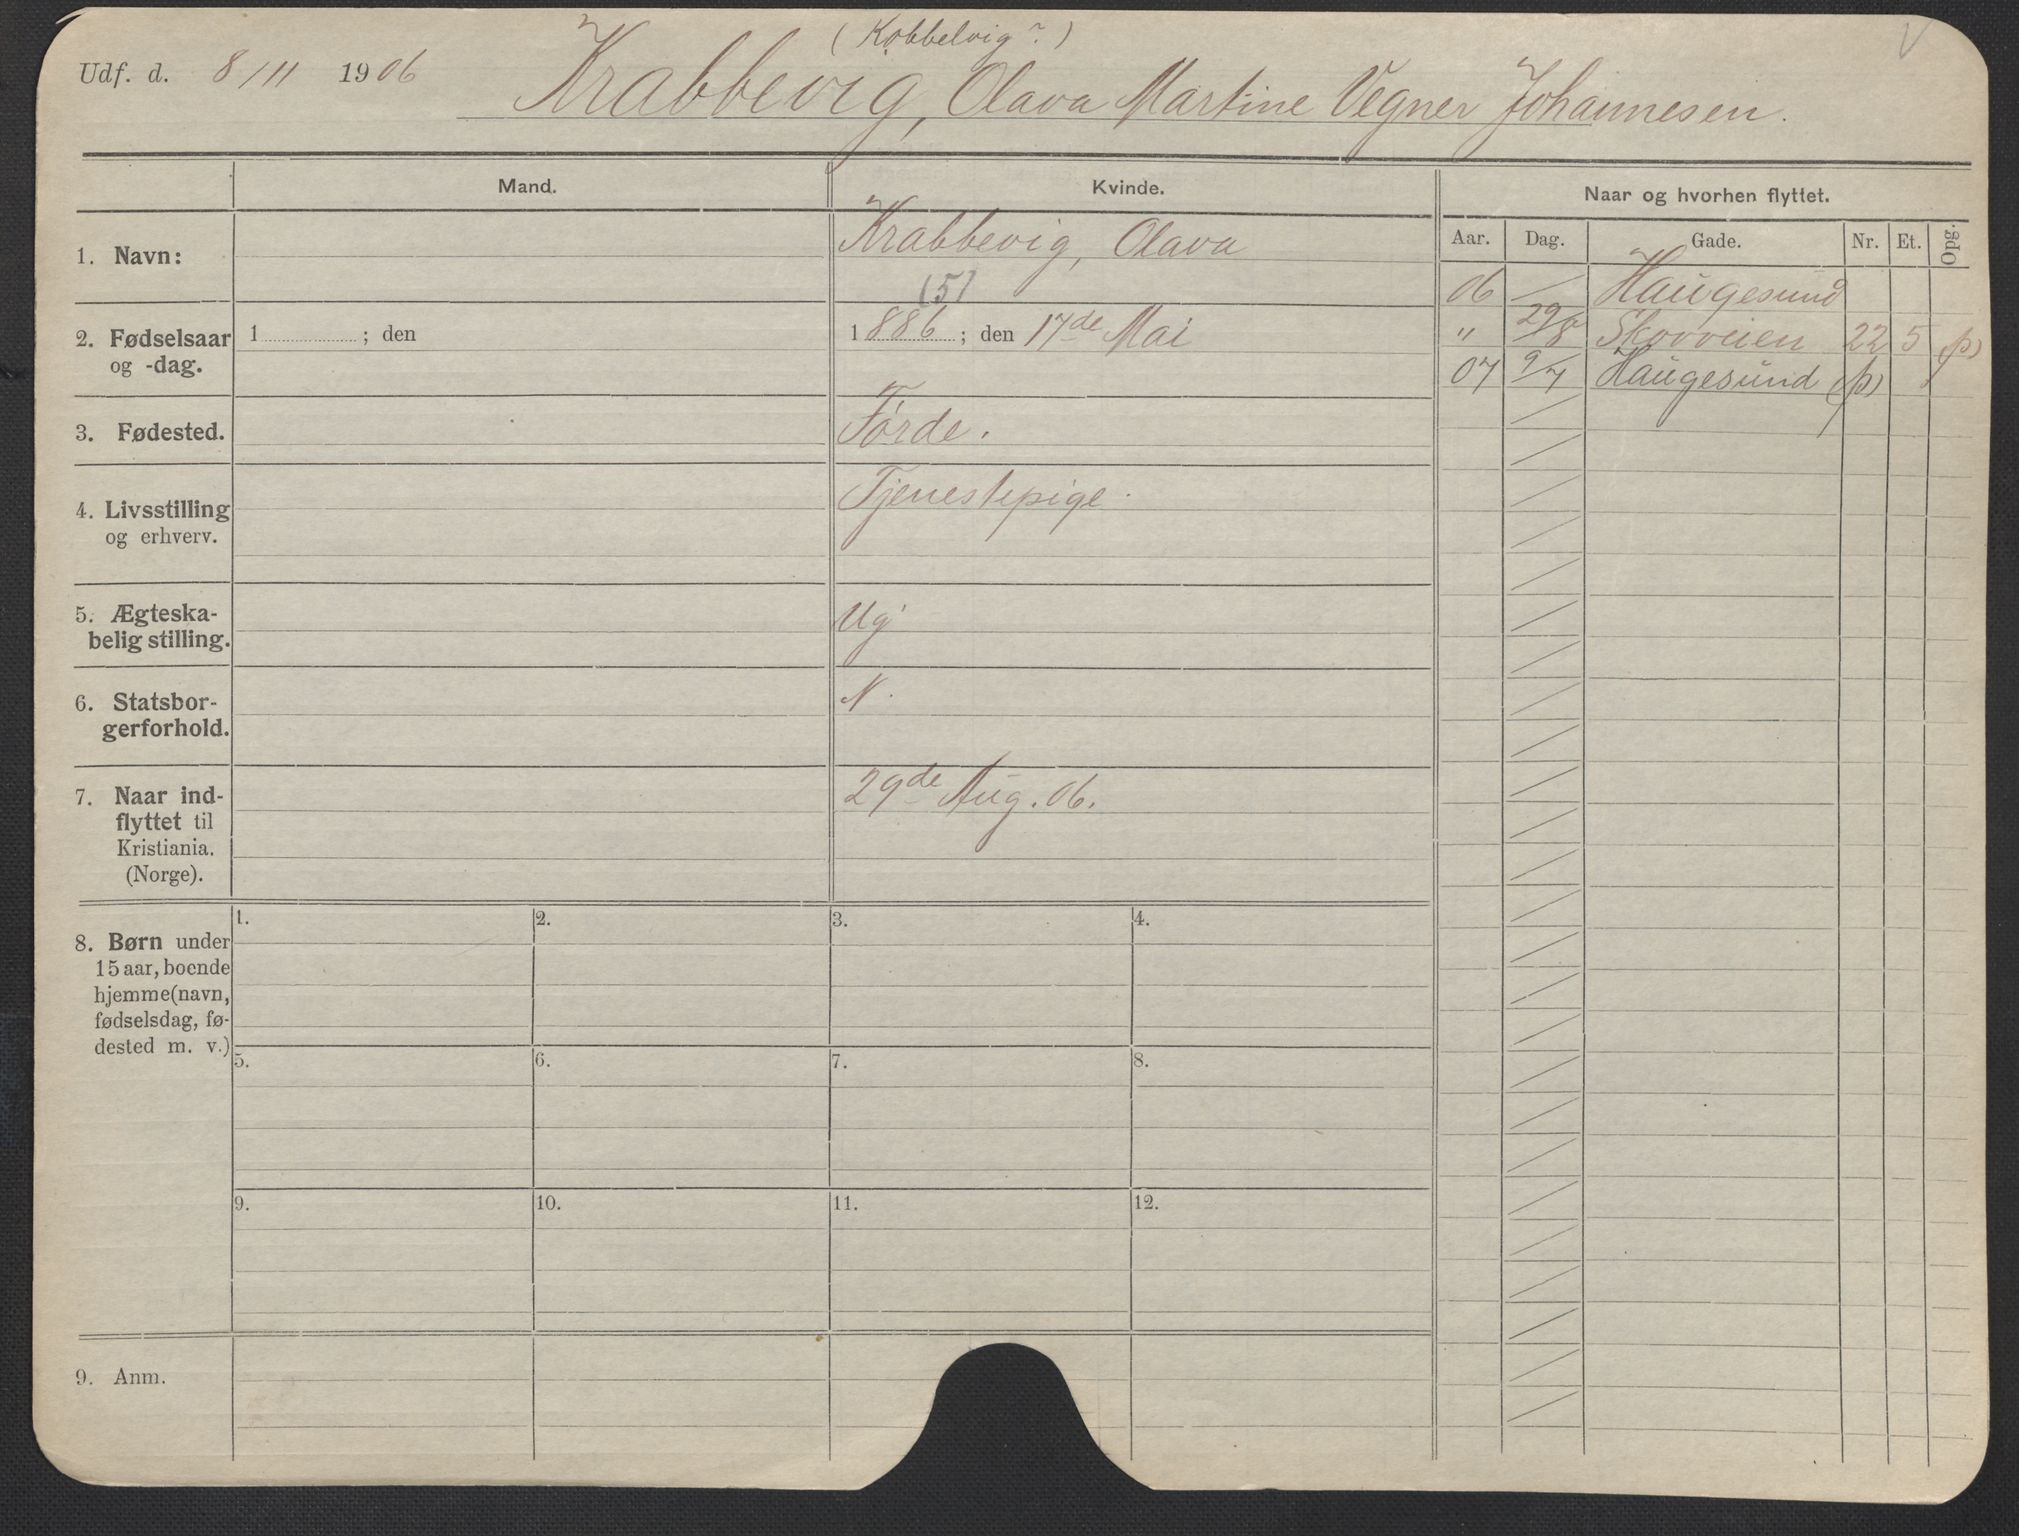 (Kobbelvig?)
Udf. d. 8/11 1906
Krabbevig, Olava Martine Vegner Johannesen.
Mand.
Kvinde.
Naar og hvorhen flyttet.
Aar. Dag. Gade. Nr. Et. Opg.
1. Navn:
Krabbevig, Olava
06 Haugesund
" 29/8 Skovveien 22 5 (p)
07 9/7 Haugesund (p)
(5)
2. Fødselsaar
og -dag.
1 ; den
1886 ; den 17de Mai
3. Fødested.
Førde.
4. Livsstilling
og erhverv.
Tjenestepige.
5. Ægteska-
belig stilling.
Ug
6. Statsbor-
gerforhold.
N.
7. Naar ind-
flyttet til
Kristiania.
(Norge).
29de Aug. 06.
8. Børn under
15 aar, boende
hjemme (navn,
fødselsdag, fø-
dested m. v.)
1. 2. 3. 4.
5. 6. 7. 8.
9. 10. 11. 12.
9. Anm.